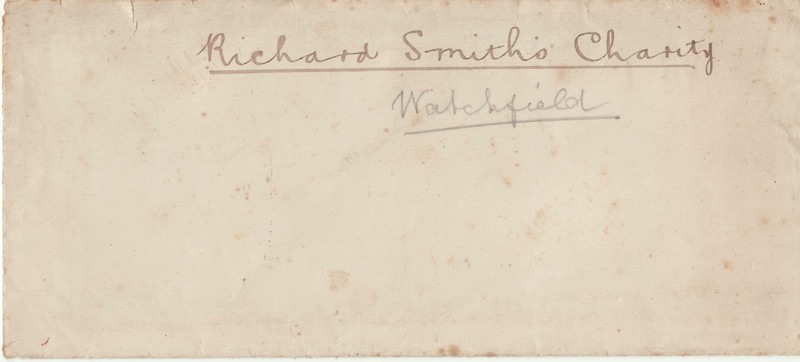 Richard Smith's Charity
Watchfield